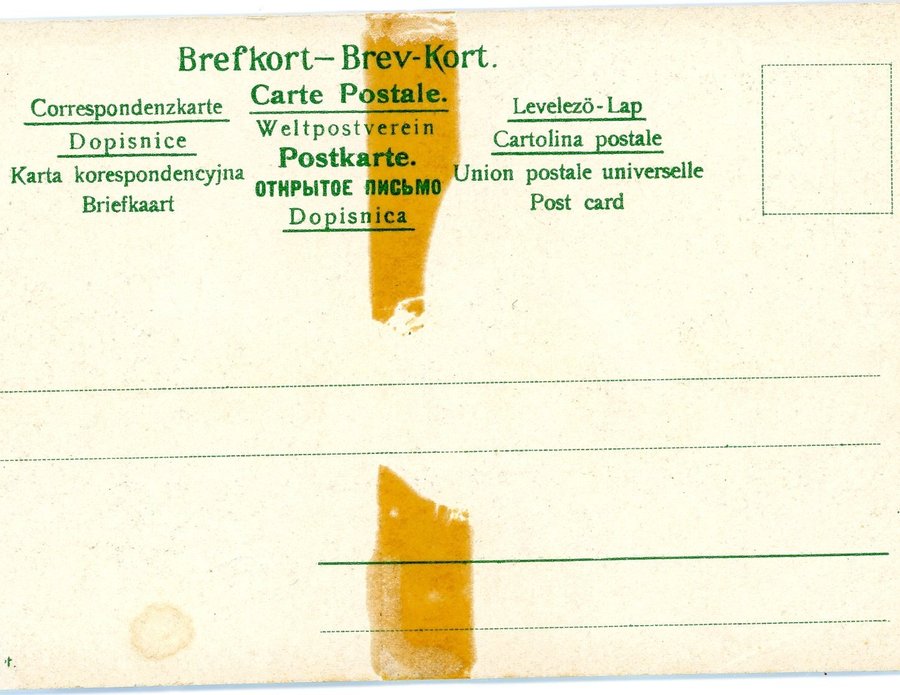 Brefkort–Brev-Kort.
Carte Postale.
Weltpostverein
Postkarte.
ОТКРЫТОЕ ПИСЬМО
Dopisnica
Correspondenzkarte
Dopisnice
Karta korespondencyjna
Briefkaart
Levelezö-Lap
Cartolina postale
Union postale universelle
Post card